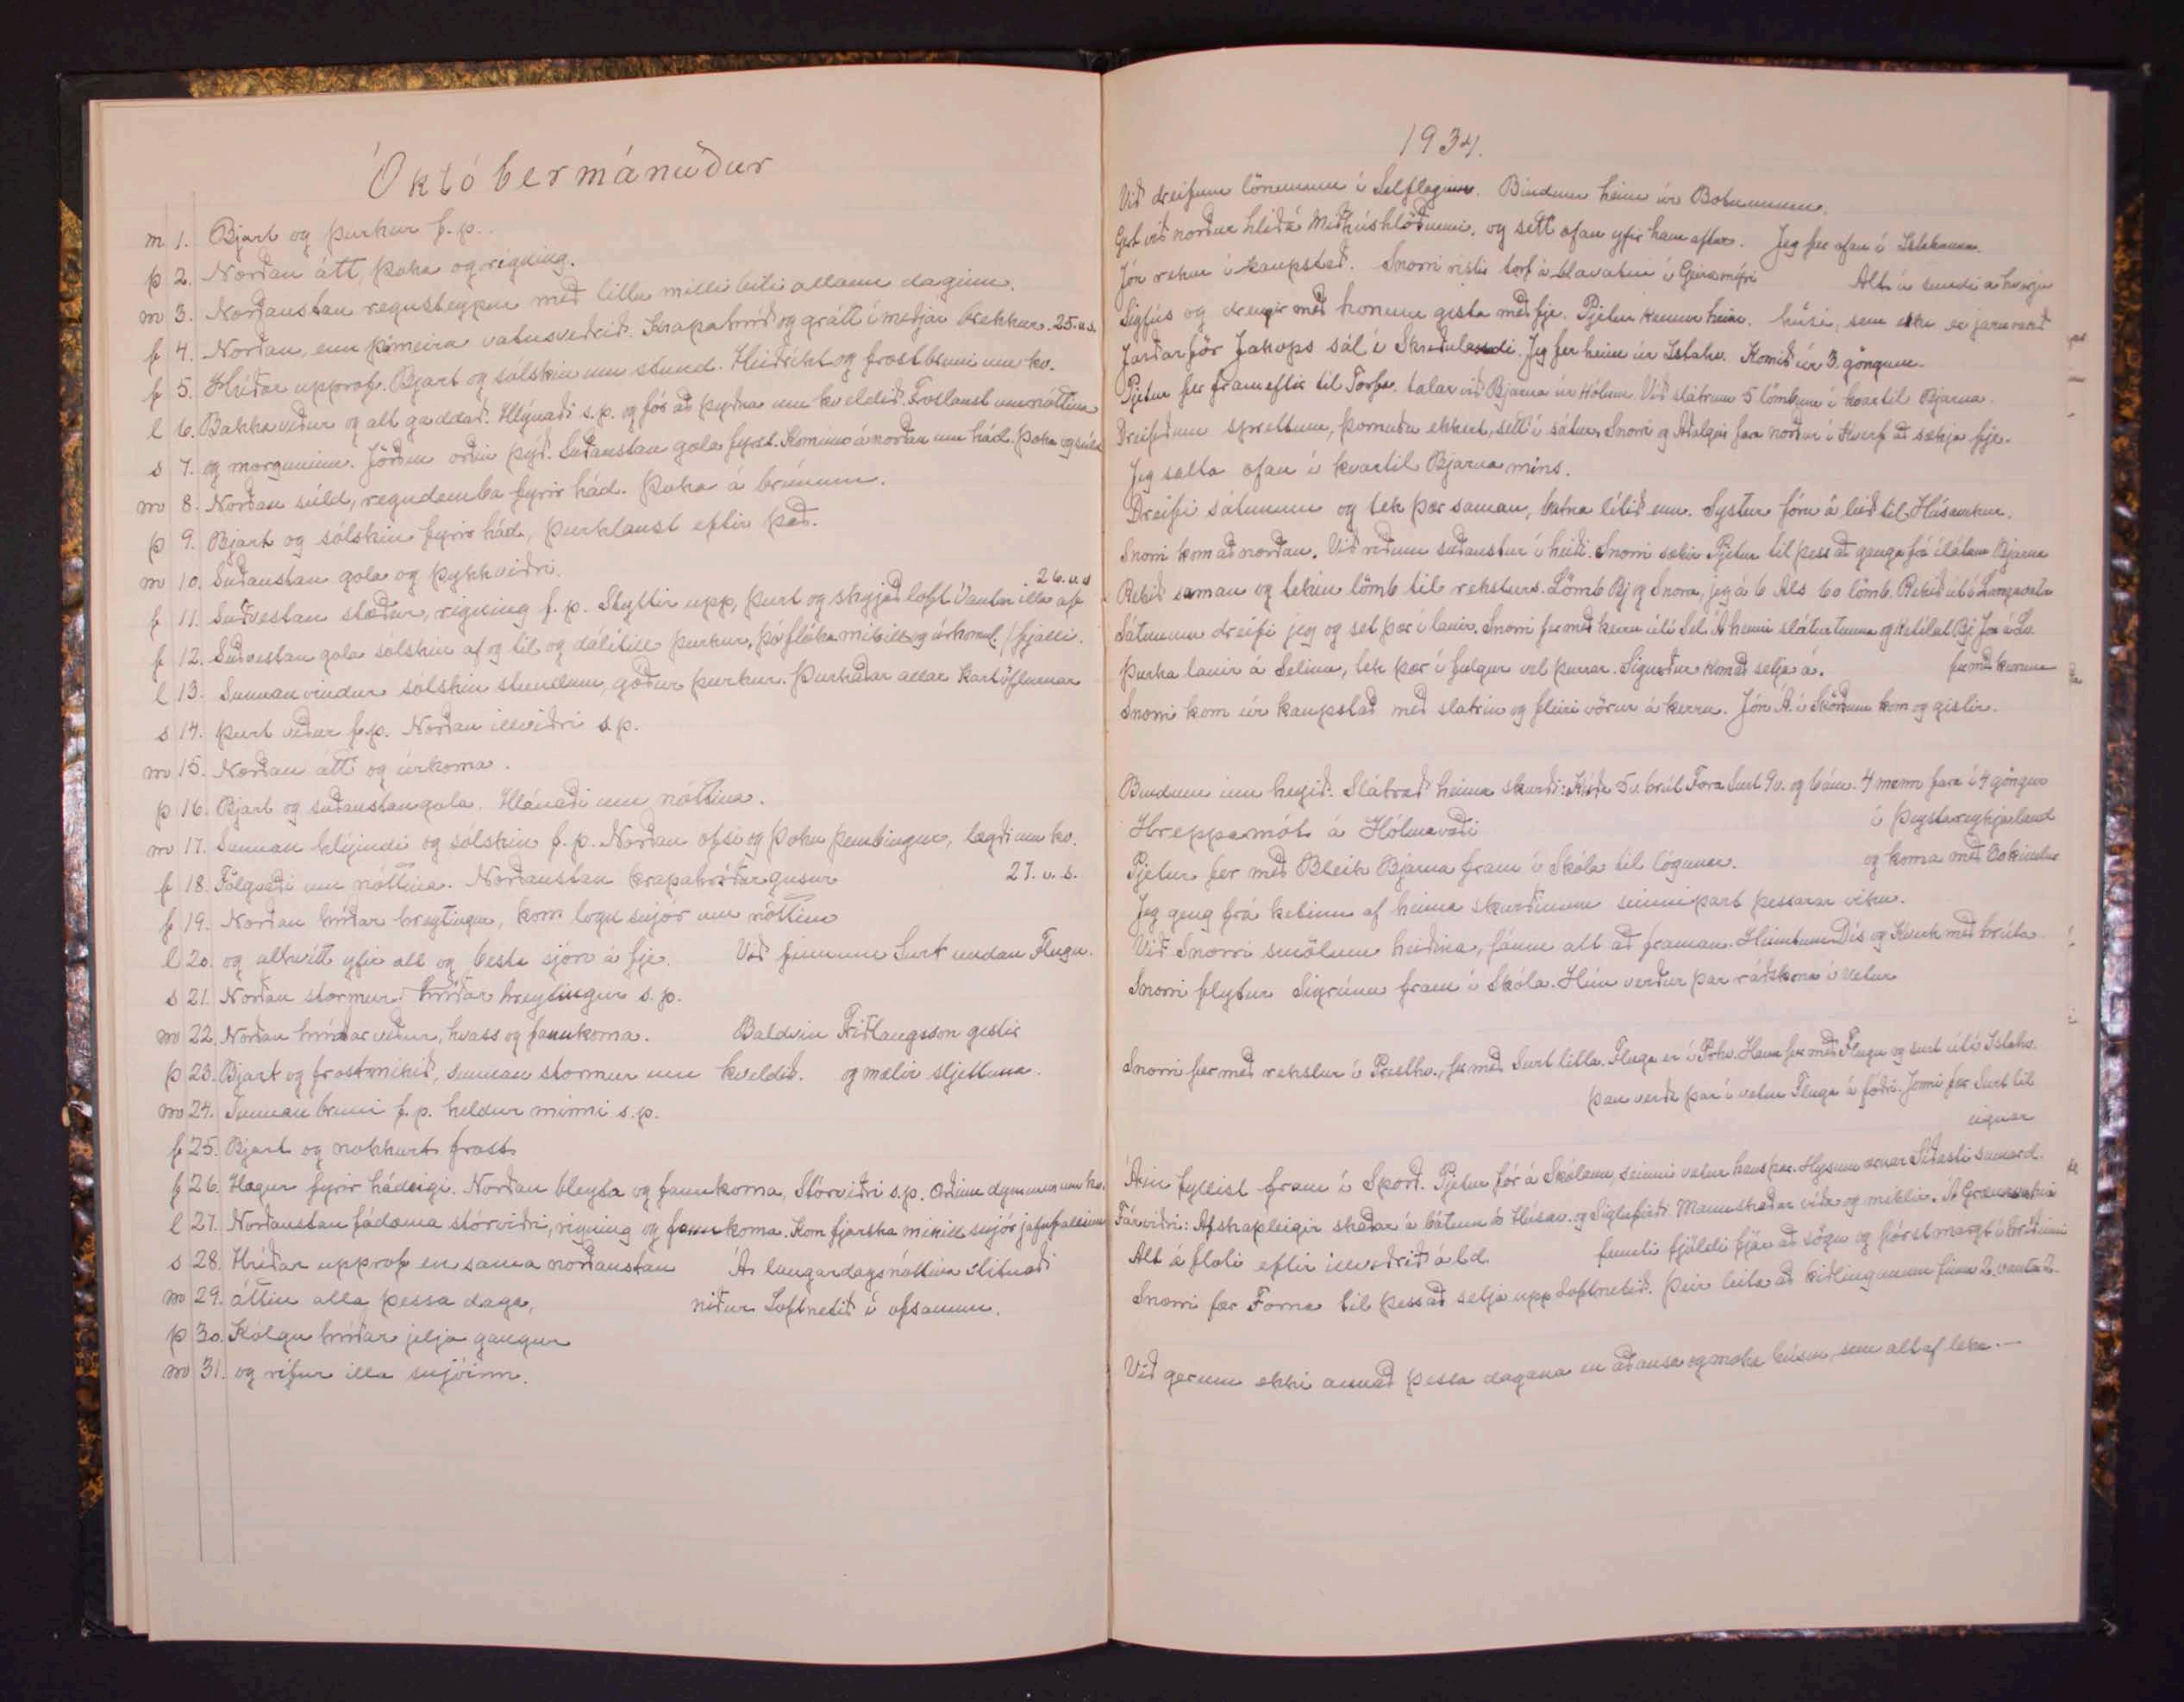 Októbermánuður
m 1. Bjart og þurkur f.p.
þ 2. Norðan átt, þoka og rigning.
m 3. Norðaustan regnsteypur með litlu milli bili allann daginn.
f 4. Norðan, enn þá meira vatnsveðrið. Krapahríð og grátt í miðjar brekkur. 25. v.s.
f 5. Hríðar upprof. Bjart og sólskin um stund. Heiðríkt og frostbruni um kv.
l 6. Bakka veður og alt gaddað. Hlýnaði s.p. og fór að þyðna um kveldið. Frostlaust um nóttina
s 7. og morguninn. Jörðin orðin þýð. Suðaustan gola fyrst. Kominn á norðan um hád. þoka og súld
m 8. Norðan súld, regndemba fyrir hád. Þoka á brúnum.
þ 9. Bjart og sólskin fyrir hád, þurklaust eftir það.
m 10. Suðaustan gola og þykkviðri.
26. v.s
f 11. Suðvestan stæður, rigning f.p. Styttir upp, þurt og skyjað loft. Vantar illa af
f 12. Suðvestan gola sólskin af og til og dálitill þurkur, þó flóka mikill og úrkomul. / fjalli.
l 13. Sunnan vindur sólskin stundum, góður þurkur. Þurkaðar allar kartöflurnar
s 14. Þurt veður f.p. Norðan illviðri s.p.
m 15. Norðan átt og úrkoma.
þ 16. Bjart og suðaustangola. Hlánaði um nóttina.
m 17. Sunnan hlýindi og sólskin f.p. Norðan ofsi og þoku þembingur, lægði um kv.
f 18. Fölgvaði um nóttina. Norðaustan krapahríðargusur 27. v. s.
f 19. Norðan hríðar hreytingur, kom logn snjór um nóttina
l 20. og alhvítt yfir alt og besta sjón á fje. Við finnum Surt undan Flugu.
s 21. Norðan stormur, hríðar hreytingur s.p.
m 22. Norðan hríðarveður, hvass og fannkoma. Baldvin Friðlaugsson gistir
þ 23. Bjart og frostmikið, sunnan stormur um kveldið. og mælir sljettuna.
m 24. Sunnan bruni f.p. heldur minni s.p.
f 25. Bjart og nokkurt frost
f 26. Hægur fyrir hádeigi. Norðan bleyta og fannkoma. Stórviðri s.p. Orðinn dymmur um kv.
l 27. Norðaustan fádæma stórviðri, rigning og fannkoma. Kom fjarska mikill snjór jafnfallinn
s 28. Hríðar upprof en sama norðaustan Á laugardagsnóttina slitnaði
m 29. áttin alla þessa daga, niður Loftnetið í ofsanum.
þ 30. Kólgu hríðar jelja gangur
m 31. og rífur illa snjóinn.
1934.
Við dreifum lönunum í Selflaginu. Bindum heim úr Botnunum.
Gert við norður hlið á Miðhúshlöðunni, og sett ofan yfir hana aftur. Jeg fer ofan í
Jón rekur í kaupstað. Snorri ristir torf á blávatni í Alt á sundi á hverju
Sigfús og drengir með honum gista með fje. Pjetur kemur heim. húsi, sem ekki er járnvarið
Jarðarför Jakops sál í Jeg fer heim úr Komið úr 3. göngum.
Pjetur fer frameftir til Torfu. talar við Bjarna úr Hólum. Við slátrum 5 lömbum í kvartil Bjarna.
Dreifðum sprettum, þornuðu ekkert, sett í sátur, Snorri og Aðalgeir fara norður í Hverf að sækja fje.
Jeg salta ofan í kvartil Bjarna mins.
Dreifi sátunum og tek þær saman, batna lítið enn. Systur fóru á leið til Húsavíkur.
Snorri kom að norðan. Við rëðum suðaustur í heiði. Snorri sækir Pjetur til þess að ganga frá ílátum Bjarna
Rekið saman og tekin lömb til reksturs. Lömb Bj og Snorra, jeg á 6 Als 60 lömb. Rekið út í
Sátunum dreifi jeg og set þær í lanir. Snorri fer með kerru út í Sel. Á henni sláturtunna og Ketilat Bj.
Þurka lanir á Selinu, tek þær í fúlgur vel þurrar. Sigurður kom að selja á. fer með kerruna
Snorri kom úr kaupstað með slátrin og fleiri vörur á kerru. Jón Á. í Sköðum kom og gistir.
Bundum inn heyið. Slátrað heima skurði: 5 v. hrút Fora Surt 9 v. og 6 ám. 4 menn fara í 4 göngur
Hreppamót á Hólmavaði í Þeystareykjarland
Pjetur fer með Bleik Bjarna fram í Skóla til lógunar. og koma með 30 kindur
Jeg geng frá ketinu af heima skurðinum seinnipart þessarar viku.
Við Snorri smölum heiðina, fáum alt að framan. Heimtum Dís og með hrúta.
Snorri flytur Sigrúnu fram í Skóla. Hún verður þar ráðskona í vetur
Snorri fer með rekstur í Presthv., fer með Surt litla. Fluga er í Prhv. Hann fer með Flugu og surt út í
þau verða þar í vetur Fluga á fóðri. fær Surt til
eignar
Áin fyllist fram í Spörð. Pjetur fór á Skólann seinni vetur hans þar. Hysum ærnar Síðasti sumard.
Fárviðri: Afskaplegir skaðar á bátum á Húsav. og Siglufirði. Mannskaðar víða og miklir. Á
Alt á floti eftir illveðrið á ld. fennti fjöldi fjár að sögn og fórst margt í hríðinni
Snorri fær Forna til þess að setja upp Loftnetið. Þeir leita að kiðlingunum finna 2. vantar 2.
Við gerum ekki annað þessa dagana en að ausa og moka húsin, sem altaf leka.—